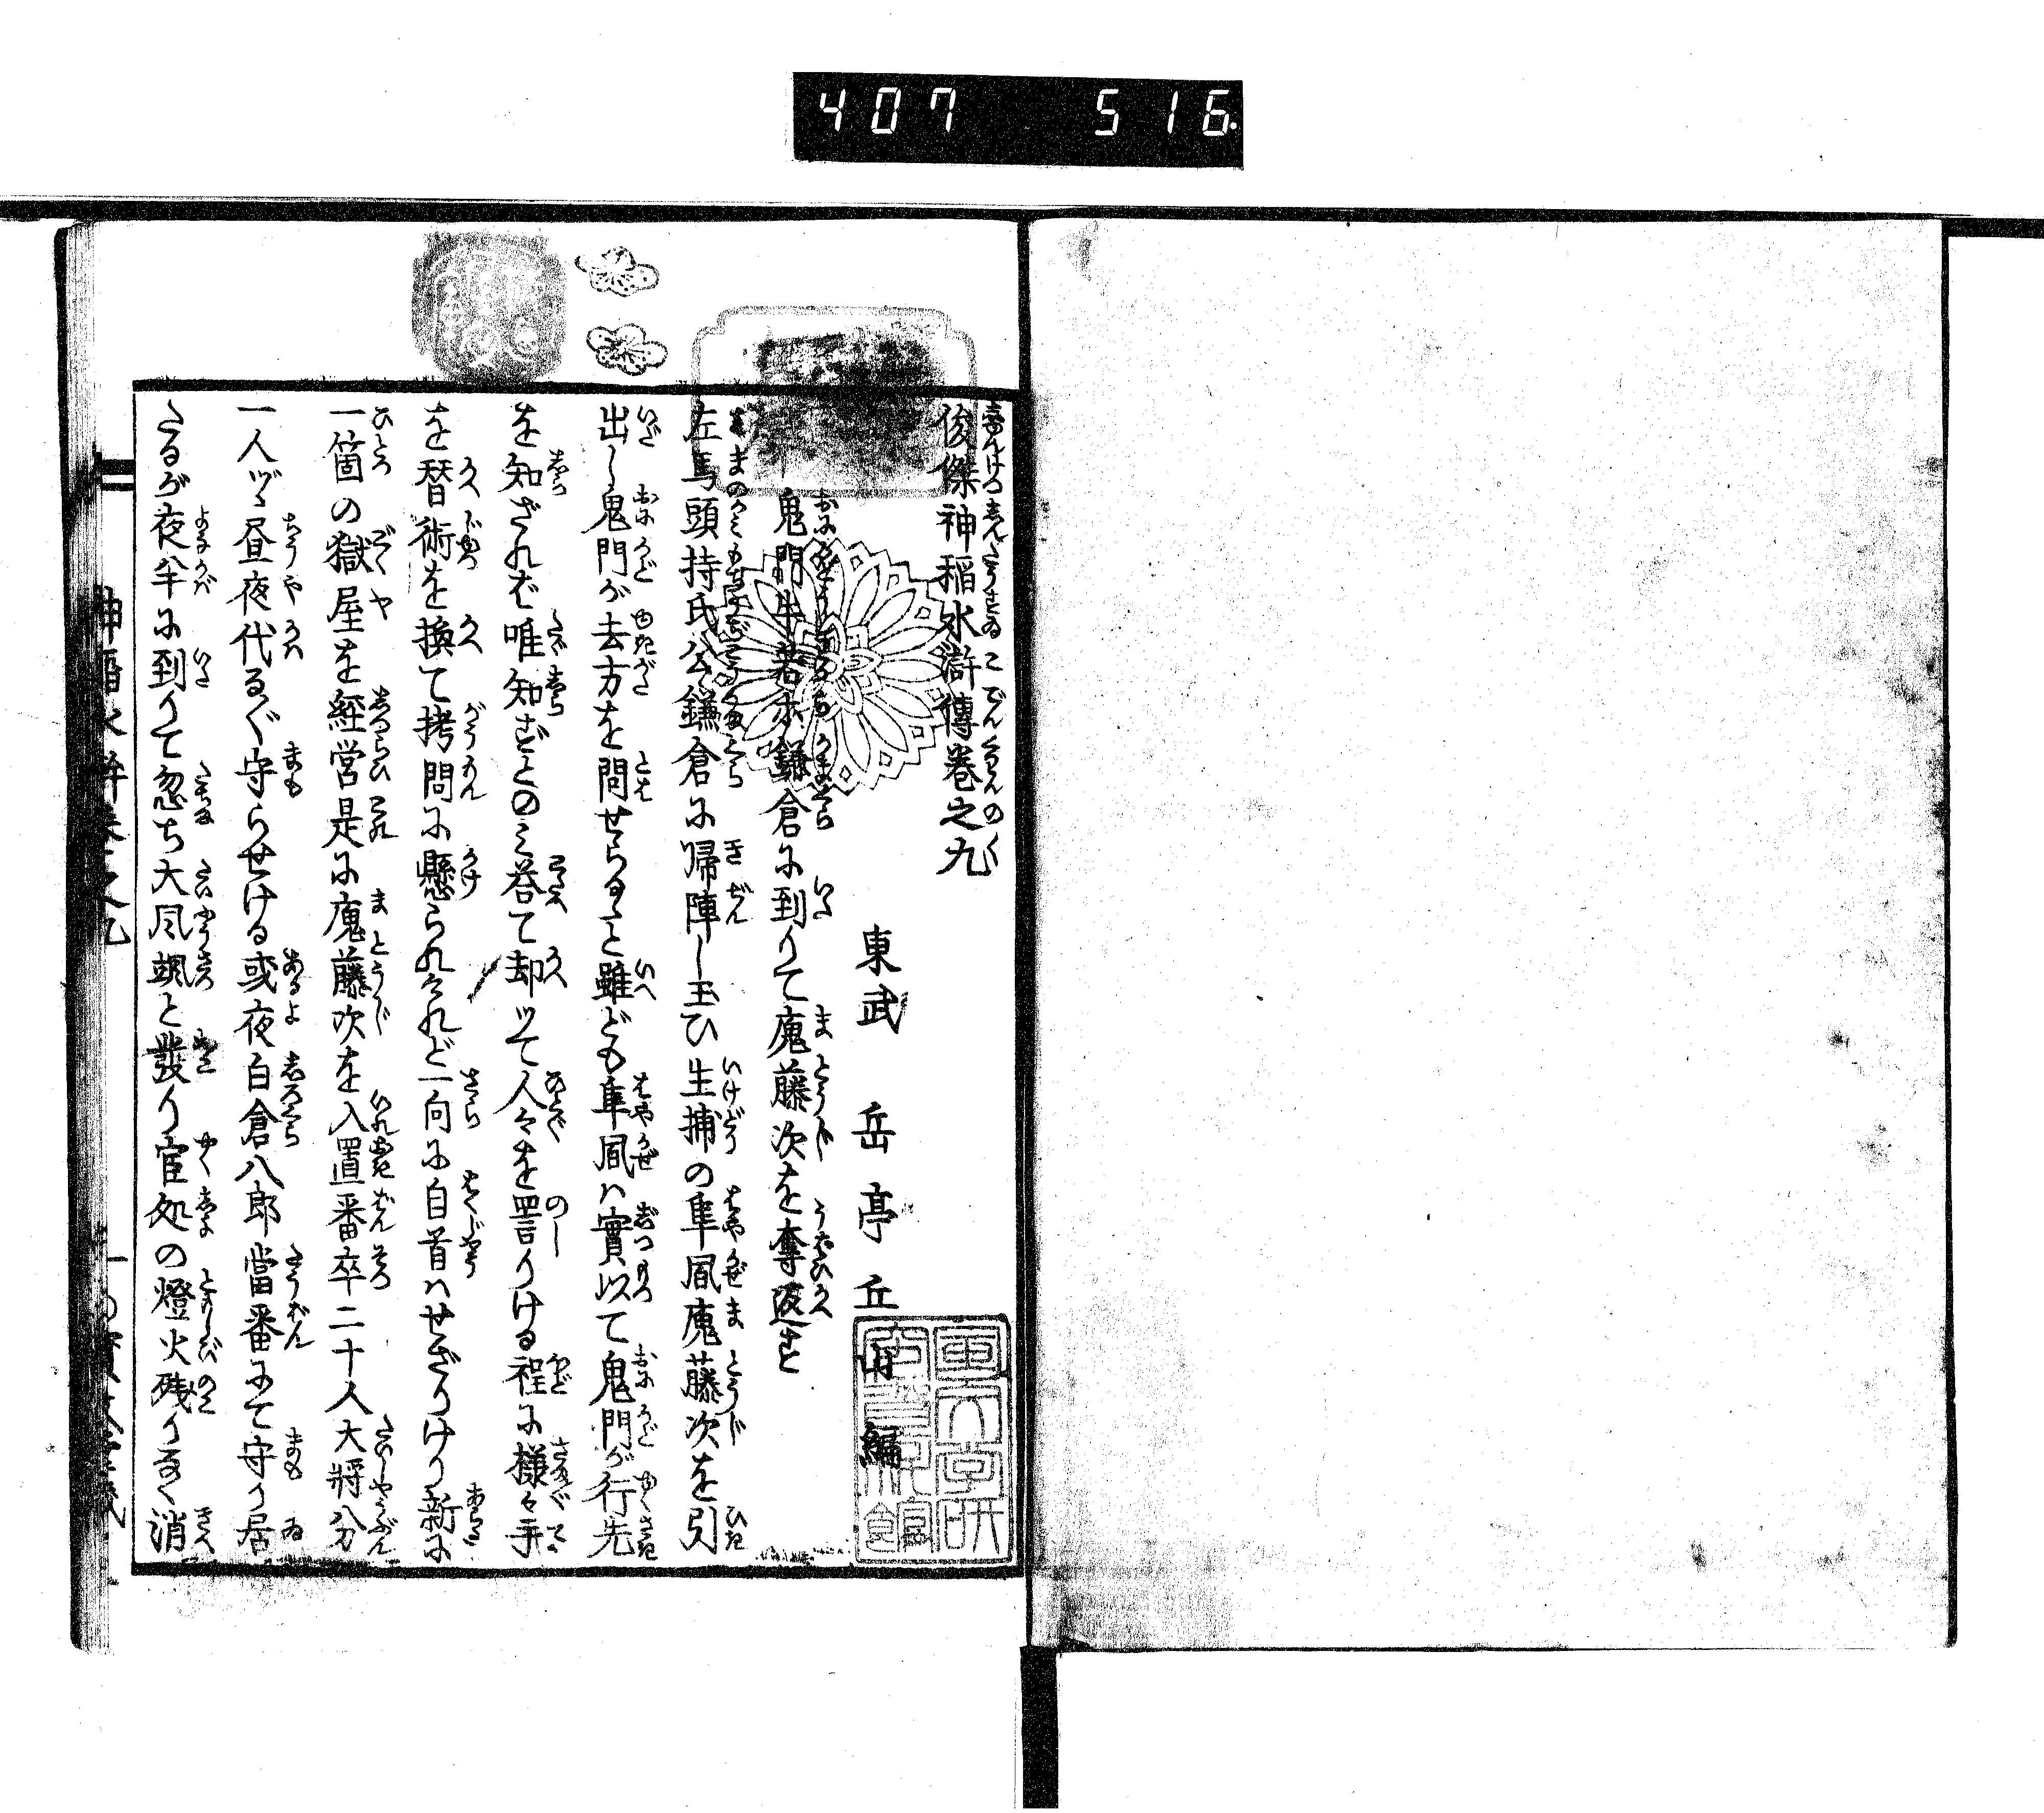 407 516
俊傑神稲水滸傳巻之九
東武 岳亭丘山編
鬼門牛若丸鎌倉に到りて魔藤次を奪返す
左馬頭持氏公鎌倉に帰陣し玉ひ生捕の隼風魔藤次を引
出し鬼門が去方を問せらるゝと雖ども隼風ハ實以て鬼門が行先
を知ざれば唯知ずとのミ答て却ツて人々を詈りける程に様々手
を替術を換て拷問に懸られけれど一向に自首ハせざりけり新に
一箇の獄屋を経営是に魔藤次を入置番卒二十人大將八分
一人ヅヽ昼夜代るゞ守らせける或夜白倉八郎當番にて守り居
たるが夜半に到りて忽ち大風颯と發り官処の燈火残りなく消
神稲水滸巻之九